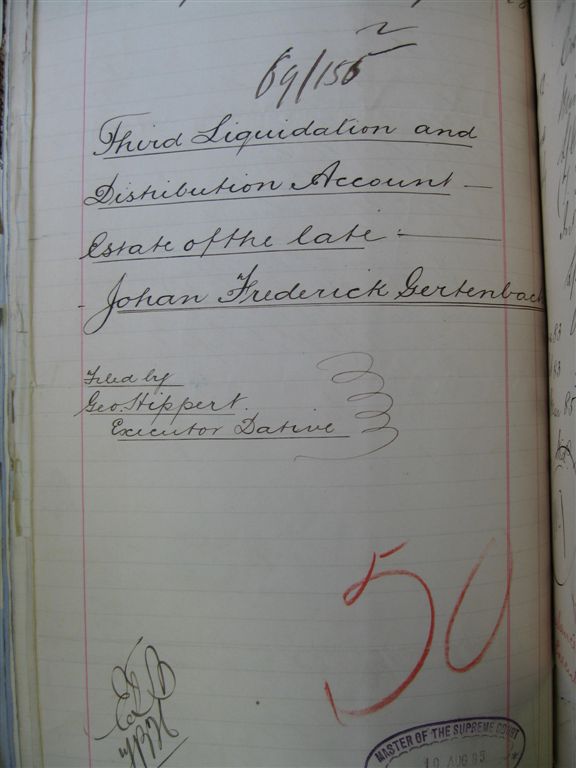 69/155
Third Liquidation and
Distribution Account —
Estate of the late :—
- Johan Frederick Gertenbach
Filed by
Geo. Hippert.
Executor Dative
50
MASTER OF THE SUPREME COURT